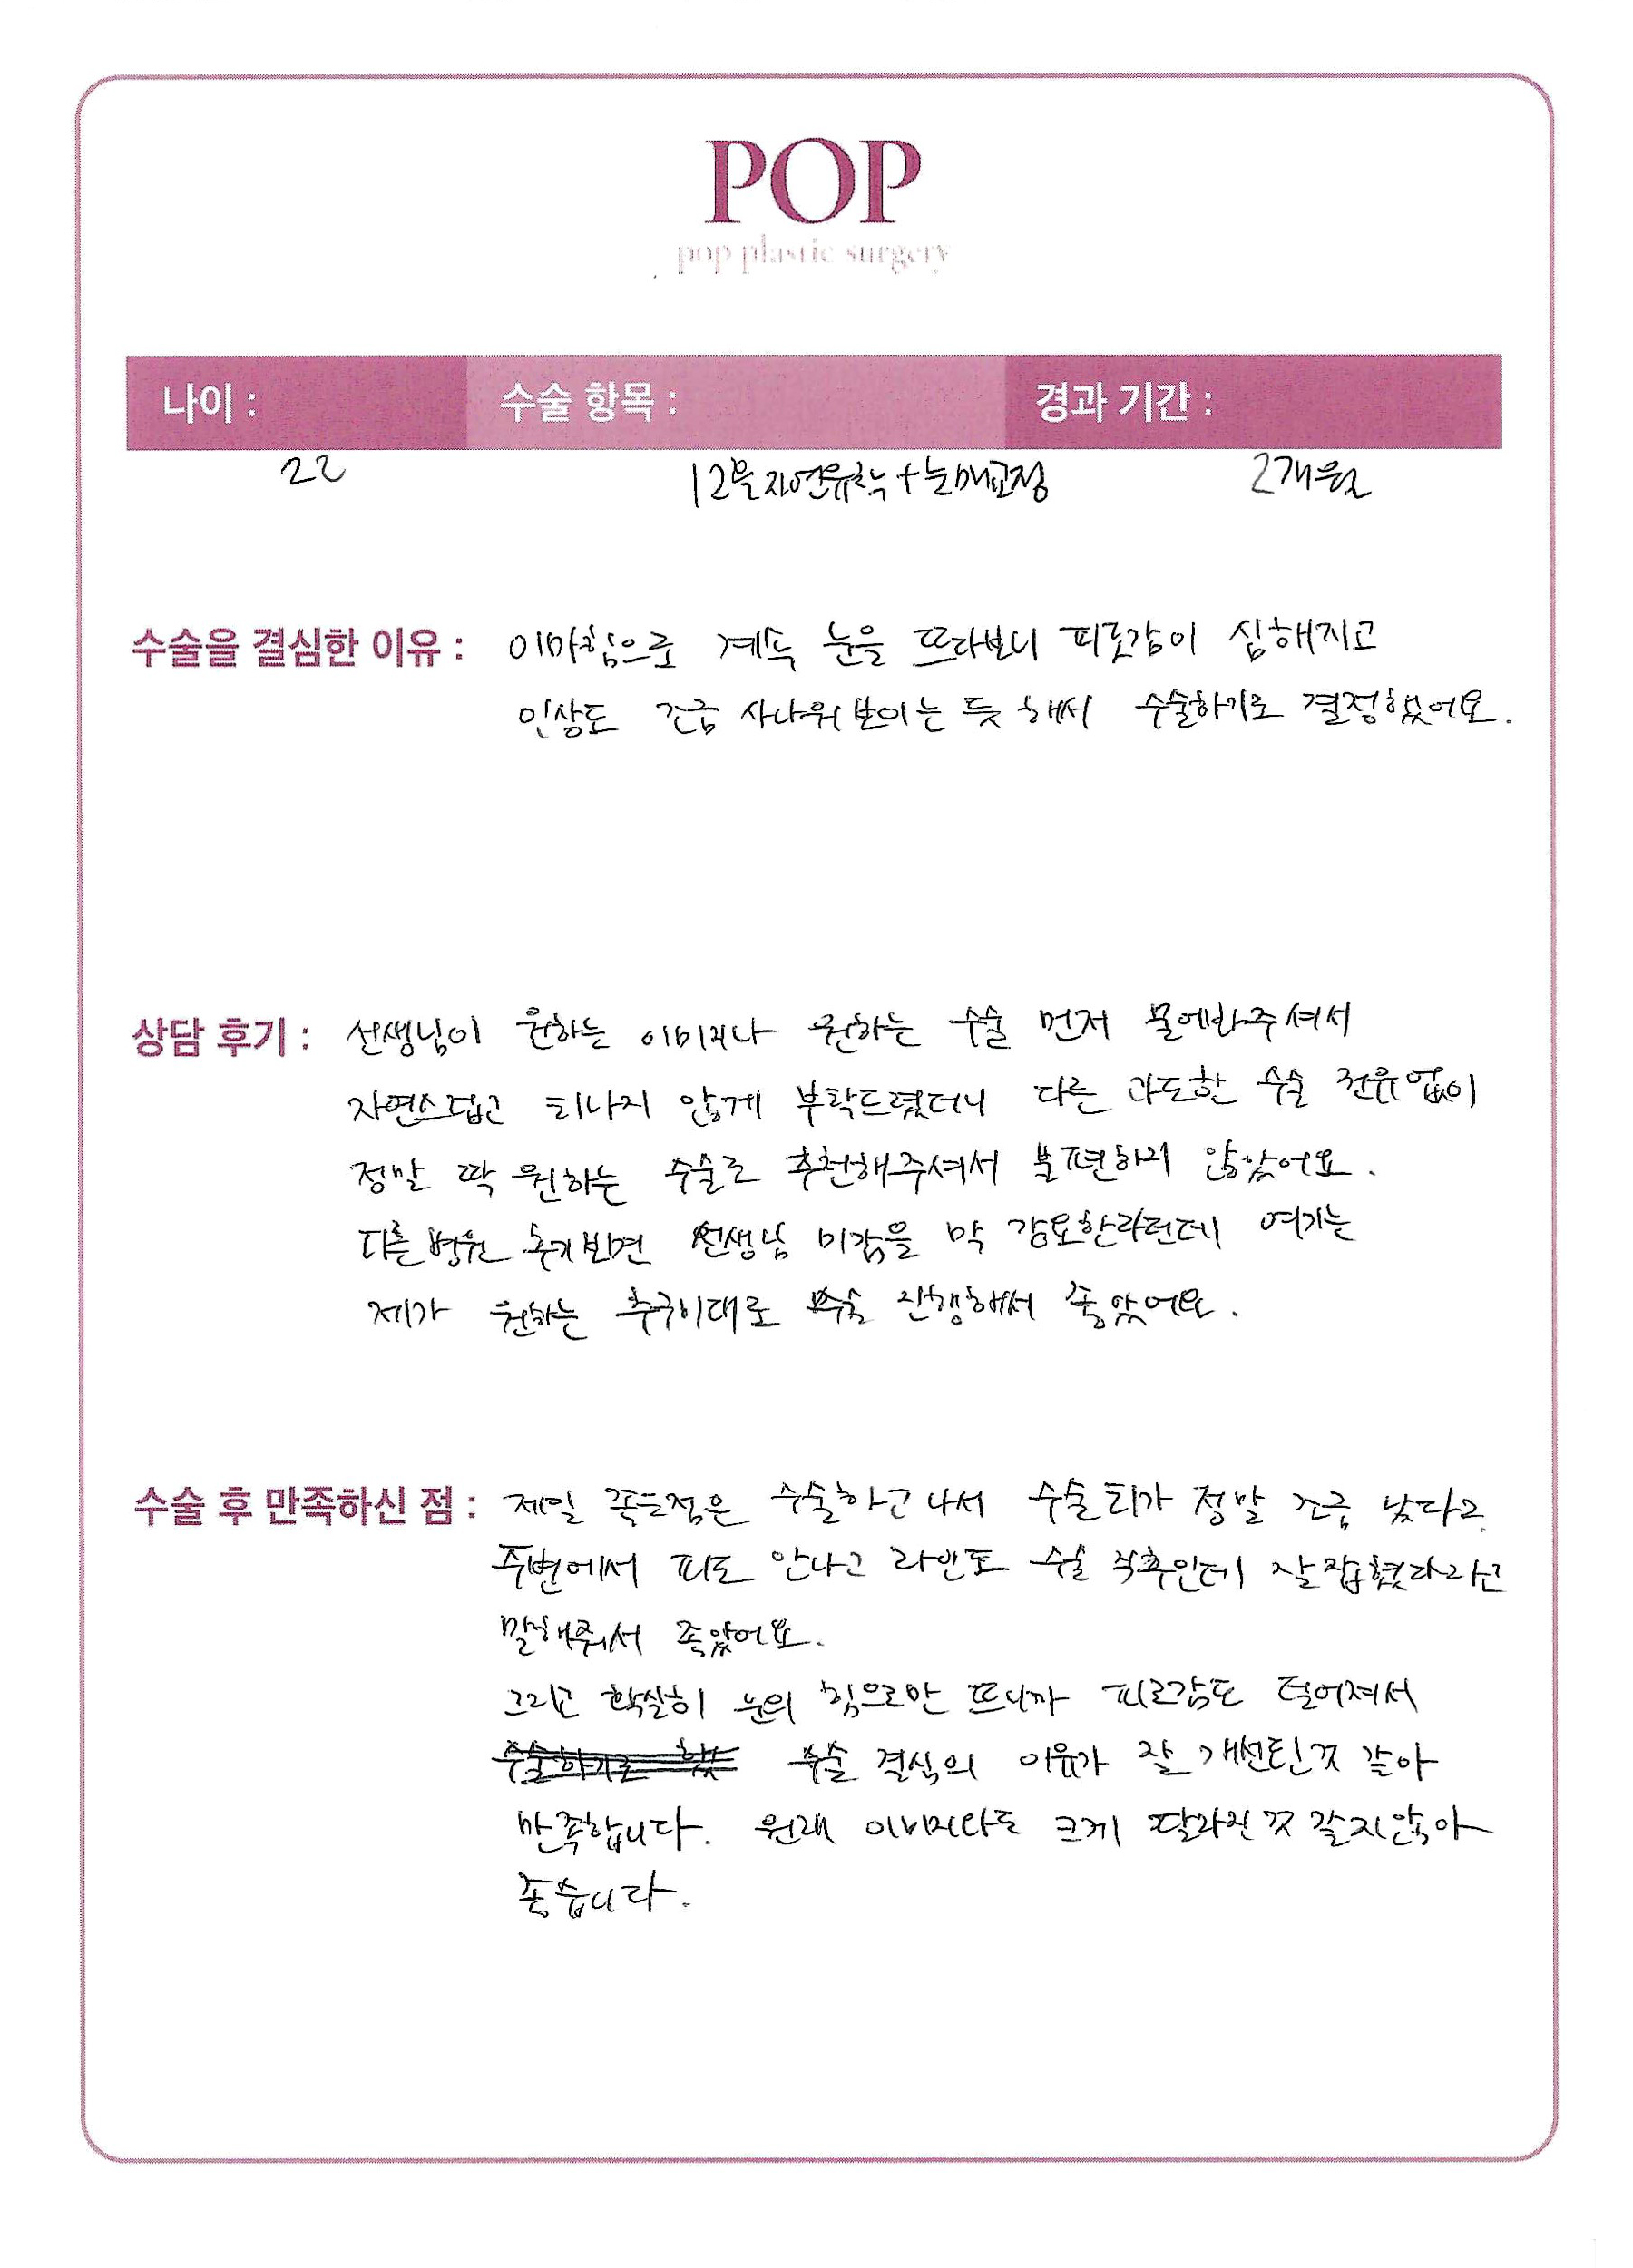 POP
pop plastic surgery
나이 : 수술 항목 : 경과 기간 :
22 12올자연유착+눈매교정 2개월
수술을 결심한 이유 : 이마힘으로 계속 눈을 뜨다보니 피로감이 심해지고
인상도 조금 사나워보이는 듯 해서 수술하기로 결정했어요.
상담 후기 : 선생님이 원하는 이미지나 원하는 수술 먼저 물에봐주셔서
자연스럽고 티나지 않게 부탁드렸더니 다른 과도한 수술 권유없이
정말 딱 원하는 수술로 추천해주셔서 불편하지 않았어요.
다른병원 후기보면 선생님 미감을 막 강요한다던데 여기는
제가 원하는 추구미대로 수술 진행해서 좋았어요.
수술 후 만족하신 점 : 제일 좋은점은 수술하고나서 수술티가 정말 조금 났다고
주변에서 피도 안나고 라인도 수술 직후인데 잘잡혔다라고
말해줘서 좋았어요.
그리고 확실히 눈의 힘으로만 뜨니까 피로감도 덜어져서
수술하기로 했 수술 결심의 이유가 잘 개선된것 같아
만족합니다. 원래 이미지와도 크게 달라진 것 같지않아
좋습니다.